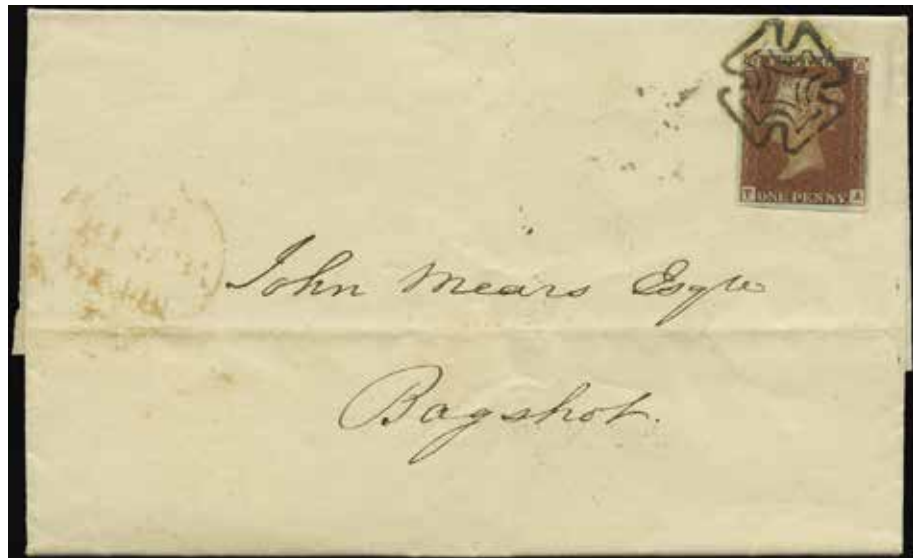 ONE PENNY
John Mears Esqre
Bagshot.